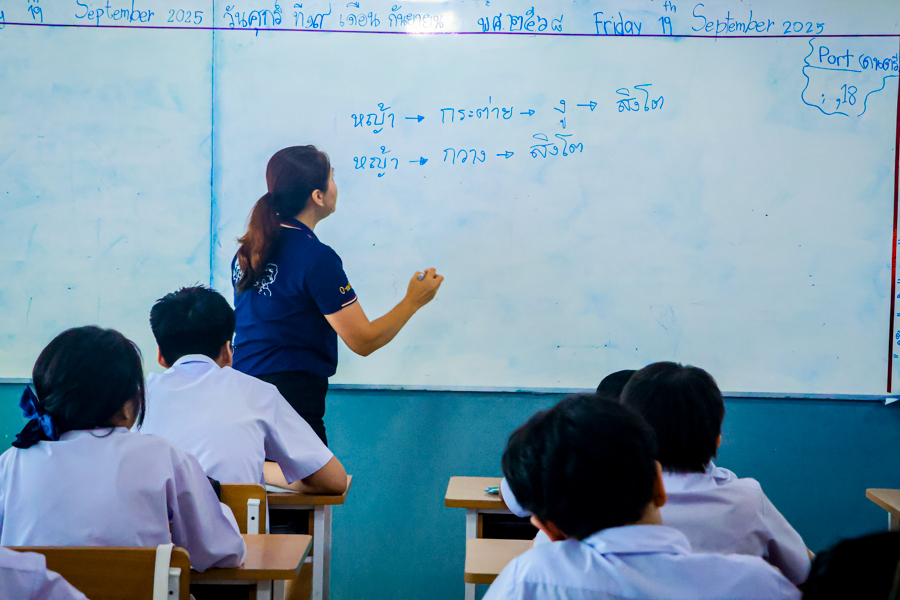 19 September 2025 วันศุกร์ ที่ ๑๙ เดือน กันยายน พ.ศ. ๒๕๖๘ Friday 19th September 2025
Port
18
หญ้า → กระต่าย → งู → สิงโต
หญ้า → กวาง → สิงโต